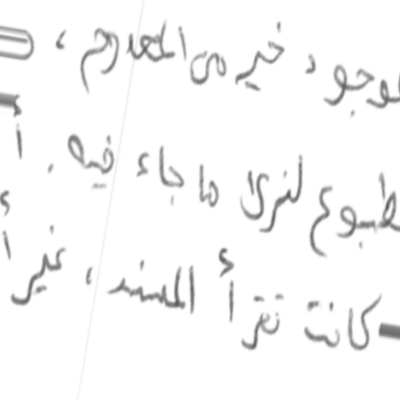 موجود خير من المعدوم ،
مطبوع لنرى ما جاء فيه . أ
كانت تقرأ المسند ، غير أ